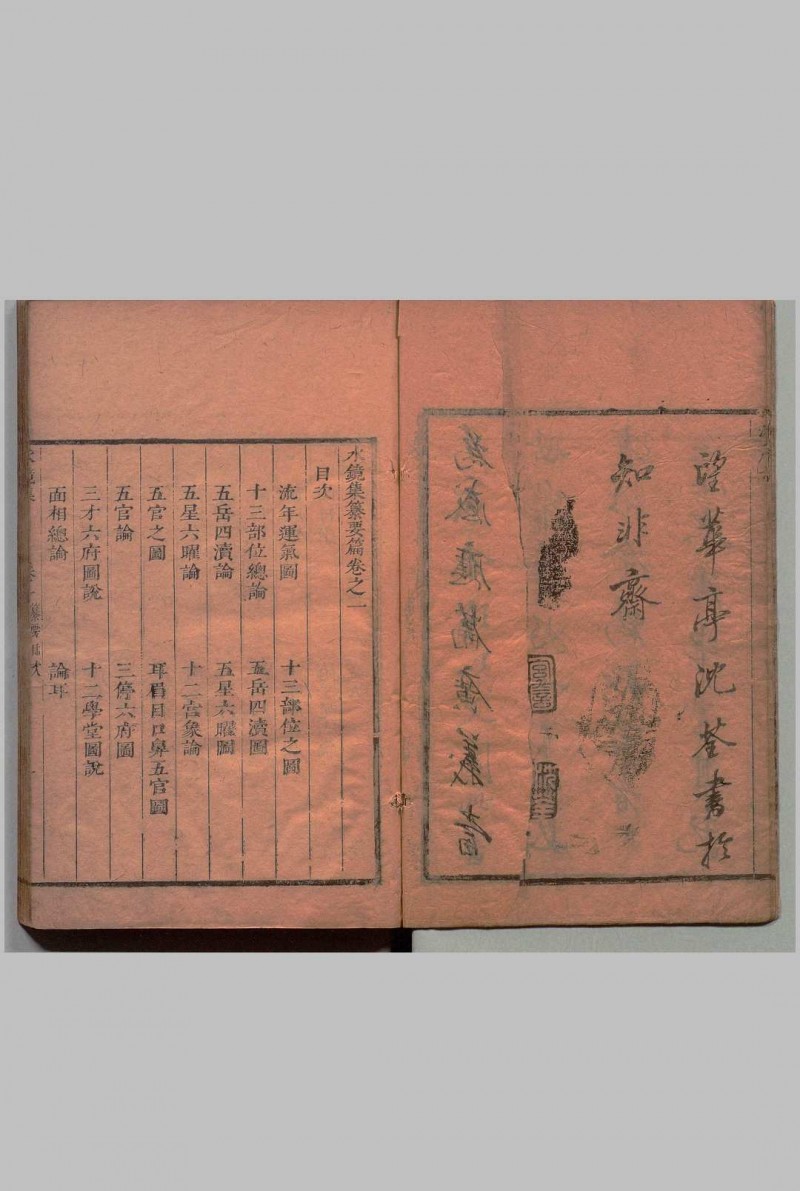 望華亭沈荃書於
知非齋
水鏡集纂要篇卷之一
目次
流年運氣圖 十三部位之圖
十三部位總論 五岳四瀆圖
五岳四瀆論 五星六曜圖
五星六曜論 十二宮象論
五官之圖 耳眉目口鼻五官圖
五官論 三停六府圖
三才六府圖說 十二學堂圖說
面相總論 論耳